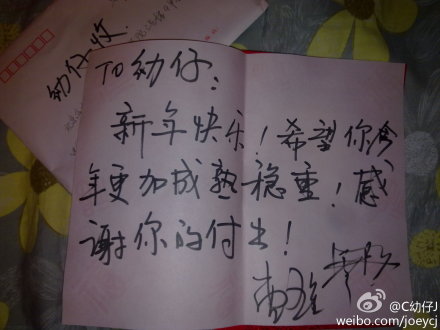 幼仔 收
TO 幼仔：
新年快乐！希望你今
年更加成熟稳重！感
谢你的付出！
@C幼仔J
weibo.com/joeycj